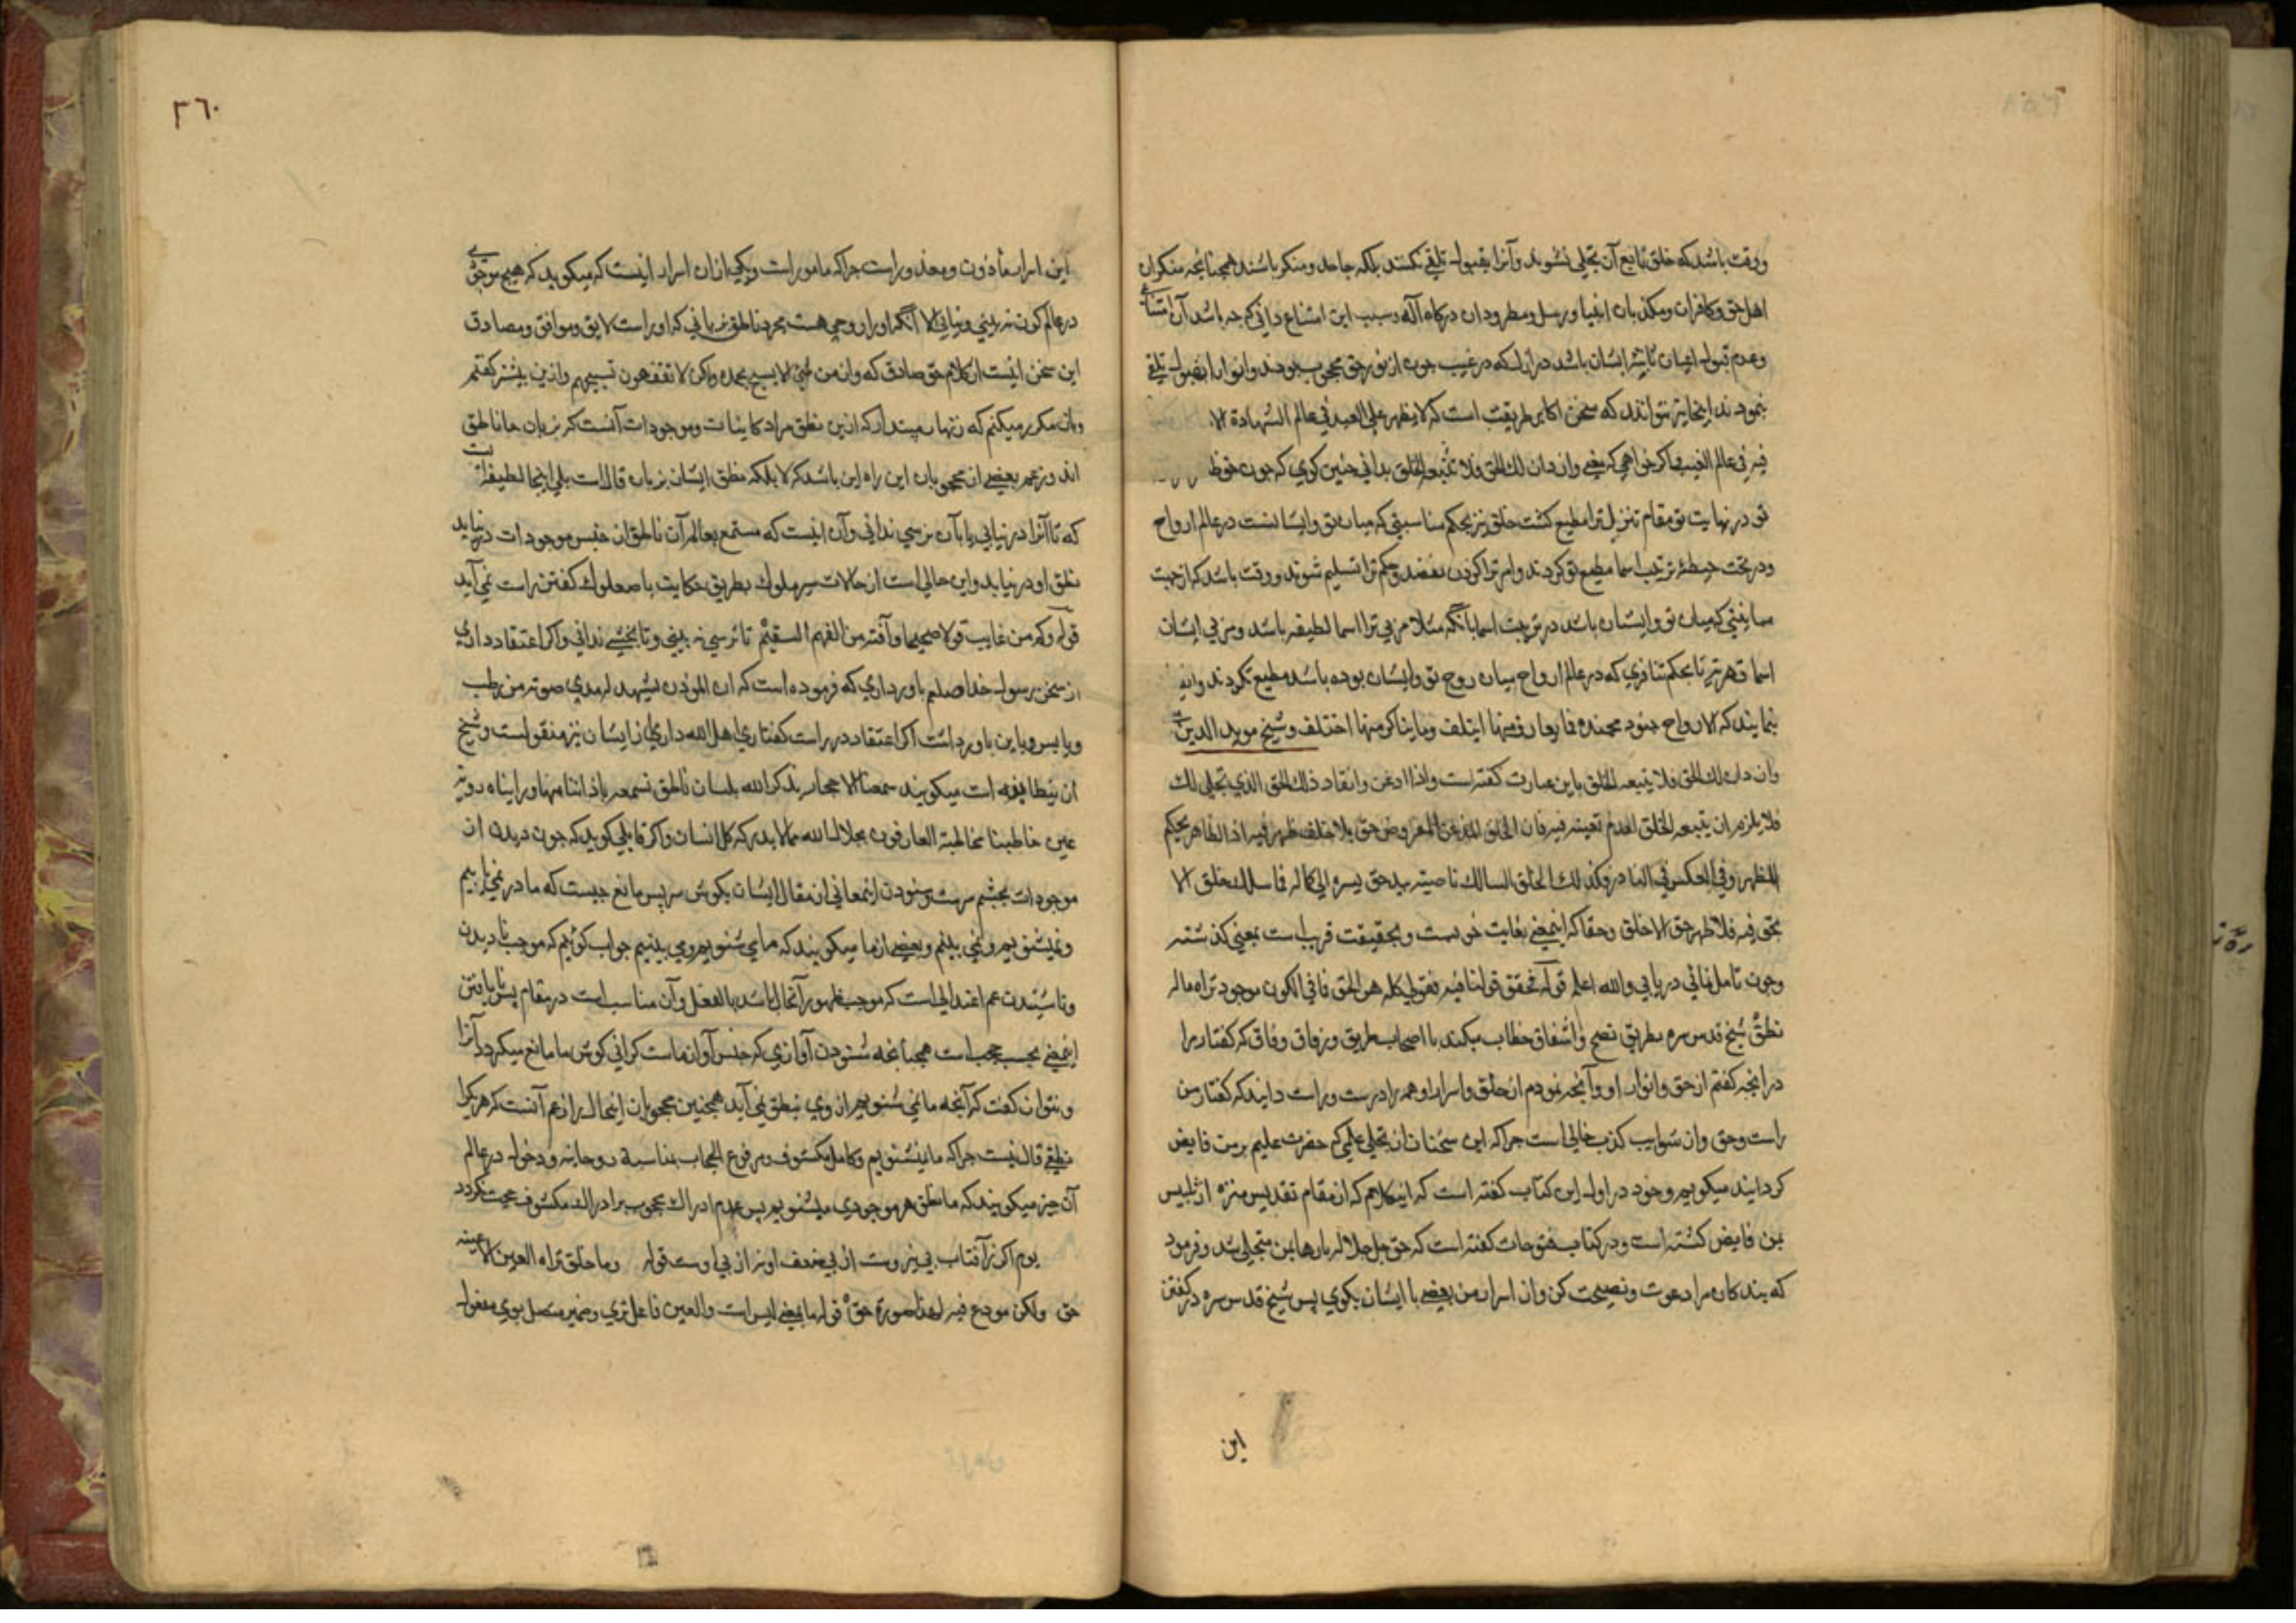 ووقت باشد که خلق تابع آن تجلی نشوند وآنرا بقبول تلقی نکنند بلکه جاحد ومنکر باشند همچنانچه منکران
اهل حق وکافران ومکذبان انبیا ورسل ومطرودان درکاه اله وسبب این امتناع دانی که جه باشد آن
وعدم قبول اعیان ایشان باشد در ازل که در غیب جون از نور حق محجوب بودند وانوار را بقبول تلقی
ننمودند اینجا نیز نتوانند که سخن اکابر طریقت است که لا یظهر علی العبد فی عالم الشهادة الا
فی عالم الغیب واکر خواهی که معنی وان دان لك الحق فلا تتبعه الخلق بدانی جنین کوی که جون
تو در نهایت تو مقام تنزیل ترا مطیع کشت خلق نیز بحکم مناسبتی که میان تو وایشانست در عالم ارواح
ودر تحت حیطهٔ ترتیب اسما مطیع تو کردند وامر ترا کردن نهند وحکم ترا تسلیم شوند ووقت باشد که از جهت
مباینتی که میان تو وایشان باشد در تربیت اسما بآنکه مثلا مربی ترا اسما لطیفه باشد ومربی ایشان
اسما قهریه تا بحکم تنافری که در عالم ارواح میان روح تو وایشان بوده باشد مطیع نکردند
نمایند که الارواح جنود مجنده فما تعارف منها ایتلف وما تناکر منها اختلف وشیخ موید الدین
وان دان لك الحق فلا یتبعه الخلق باین عبارت کفته است واذا ادعن وانقاد ذلك الحق الذی تجلی لك
فلا یلزم ان یتبعه الخلق لعدم تعینه فیه فان الخلق المذعن المفروض حق بلا خلف ظهر فیه اذ الظاهر بحکم
المظهر وفی العکس فی النادر وکذلك الخلق السالك ناصیته بید حق یسره الی کماله فما سلك خلق الا
بحق فیه فلا ظهر حق الا خلق وحقا که اینمعنی بغایت خوبست وبحقیقت قریب است بمعنی کذشته
وجون تامل نمائی دریابی والله اعلم قوله فحقق قولنا فیه فقولی کله هو الحق فما فی الکون موجود تراه ماله
نطقٌ شیخ قدس سره بطریق نصح واشفاق خطاب میکند با اصحاب طریق ورفاق وفاق که کفتار مرا
در انجه کفتم از حق وانوار او وآنجه نمودم از خلق واسرار او همه را درست وراست دانید که کفتار من
راست وحق واز شوایب کذب خالی است جرا که این سخنان از تجلی علمی که حضرت علیم بر من فایض
کردانید میکویم وخود در اول این کتاب کفته است که اینکلام که از مقام تقدیس منزه از تلبیس
بمن فایض کشته است ودر کتاب فتوحات کفته است که حق جل جلاله بارها بمن متجلی شد وفرمود
که بندکان مرا دعوت ونصیحت کن واز اسرار من بعضی با ایشان بکوی پس شیخ قدس سره در کفتن
این
٢٦٠
این اسرار ماذون ومعذور است جرا که مامور است ویکی از ان اسرار اینست که میکوید که هیج موجودی
در عالم کون نه بینی ونیابی الا آنکه اورا روحی هست مجرد ناطق بزبانی که اورا است لایق وموافق ومصادق
این سخن اینست از کلام حق صادق که وان من شیئ الا یسبح بحمده ولکن لا تفقهون تسبیحهم وازین بیشتر کفتم
وباز مکرر میکنم که زنهار مپندار که ازین نطق مراد کاینات وموجودات آنست که بزبان حال ناطق
اند وزعم بعضی از محجوبان این راه این باشد که لا بلکه نطق ایشان بزبان قال است بلی اینجا لطیفه است
که تا آنرا درنیابی یا بآن نرسی ندانی وآن اینست که مستمع بعالم آن ناطق از جنس موجودات درنیاید
نطق او درنیابد واین حالی است از حالات سیر ملوك بطریق حکایت با صعلوك کفتن راست نمی آید
قوله وکم من غایب قولا صحیحا وآفته من الفهم السقیم تا نرسی نه بینی وتا نچشی ندانی واکر اعتقاد داری
از سخن رسول خدا صلعم باور داری که فرموده است که ان الموذن لیشهد له مدی صوته من رطب
ویابس وباین باور داشت اکر اعتقاد در راست کفتاری اهل الله داری از ایشان نیز منقول است وشیخ
ازین طایفه است میکوید سمعنا الاحجار یذکر الله بلسان ناطق تسمعه باذاننا منها ورایناه رویة
عین خاطبنا مخاطبة العارفون بجلال الله مما لا یدرکه کل انسان واکر قایلی کوید که جون دیدن از
موجودات بجشم سر است وشنودن اینمعانی از مقال ایشان بکوش سر پس مانع جیست که ما درنمی یابیم
ونمیشنویم ونمی بینیم وبعضی از ما میکویند که ما می شنویم ومی بینیم جواب کوئیم که موجب نادیدن
وناشنیدن عدم اعتدالی است که موجب ظهور آنحال باشد بالفعل وآن مناسب است در مقام پس نایافتن
اینمعنی بحسب حجب است همچنانجه شنودن آوازی که جنس آواز ماست کرانی کوش ما مانع میکردد آنرا
ونتوان کفت که آنجه ما نمی شنویم از وی نبطق نمی آید همجنین محجوبان اینحال را زعم آنست که هر یکرا
نطقی قال نیست جرا که ما نمیشنویم وکامل مکشوف ومرفوع الحجاب بمناسبة روحانیه ودخول در عالم
آن جیز میکویند که ما نطق هر موجودی میشنویم پس عدم ادراك محجوب برادراك مکشوف حجت نکردد
بوم اکر ز آفتاب بی نیروست از بی ضعف او نه از بی اوست قوله وما خلق تراه العین الا عینه
حق ولکن مودع فیه لهذا صورة حقٌ قوله ما بمعنی لیس است والعین فاعل تری وضمیر متصل بوی مفعول